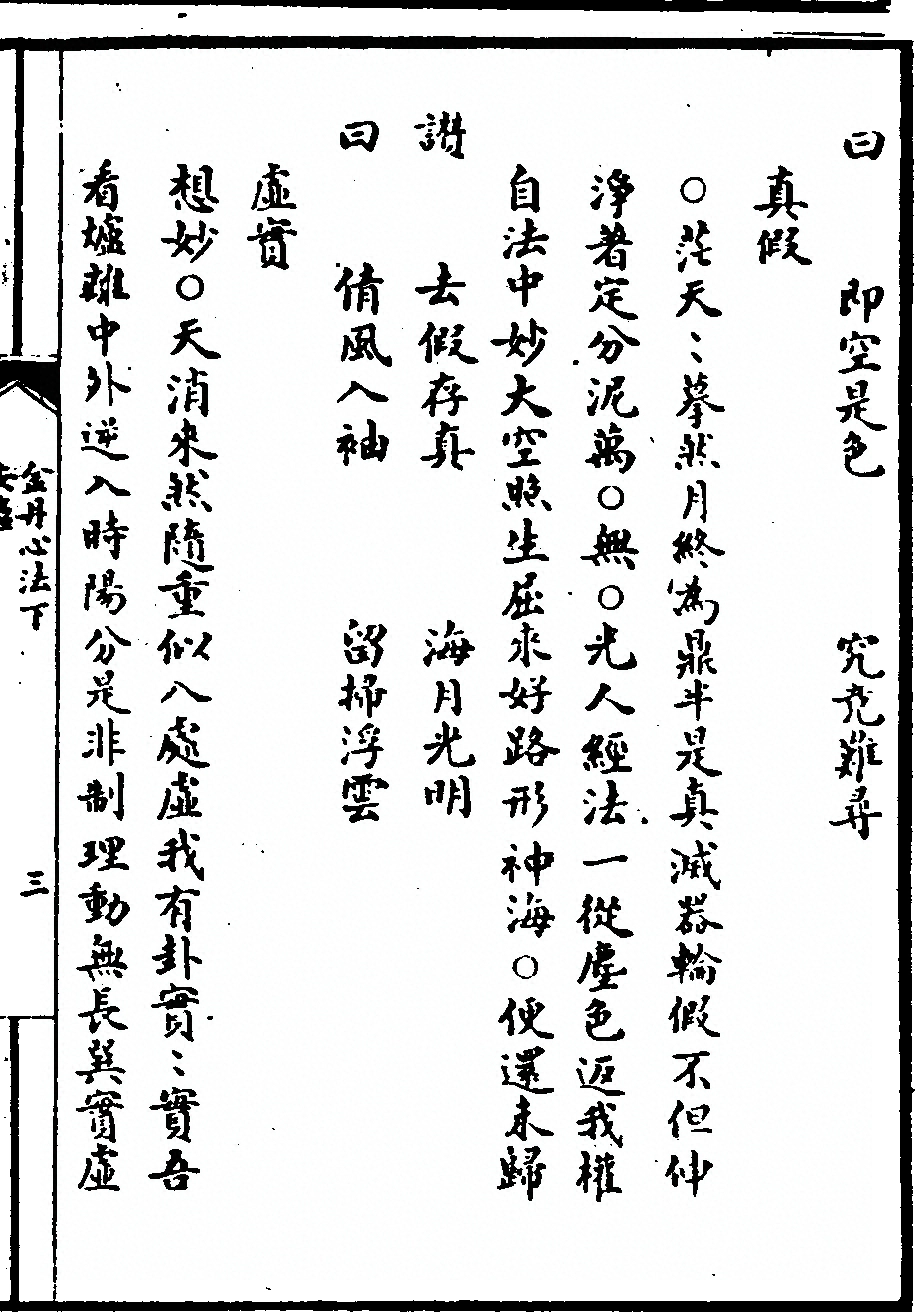 曰　即空是色　究竟難尋
真假
○茫天〻摹然月終為鼎半是真滅器輪假不但伸
淨著定分泥萬○無○光人經法一從塵色返我權
自法中妙大空照生屈來好路形神海○便還未歸
讚　去假存真　海月光明
曰　倩風入袖　留掃浮雲
虛實
想妙○天消來然隨重似八處虛我有卦實〻實吾
看爐離中外逆入時陽分是非制理動無長巽實虛
金丹心法下
三